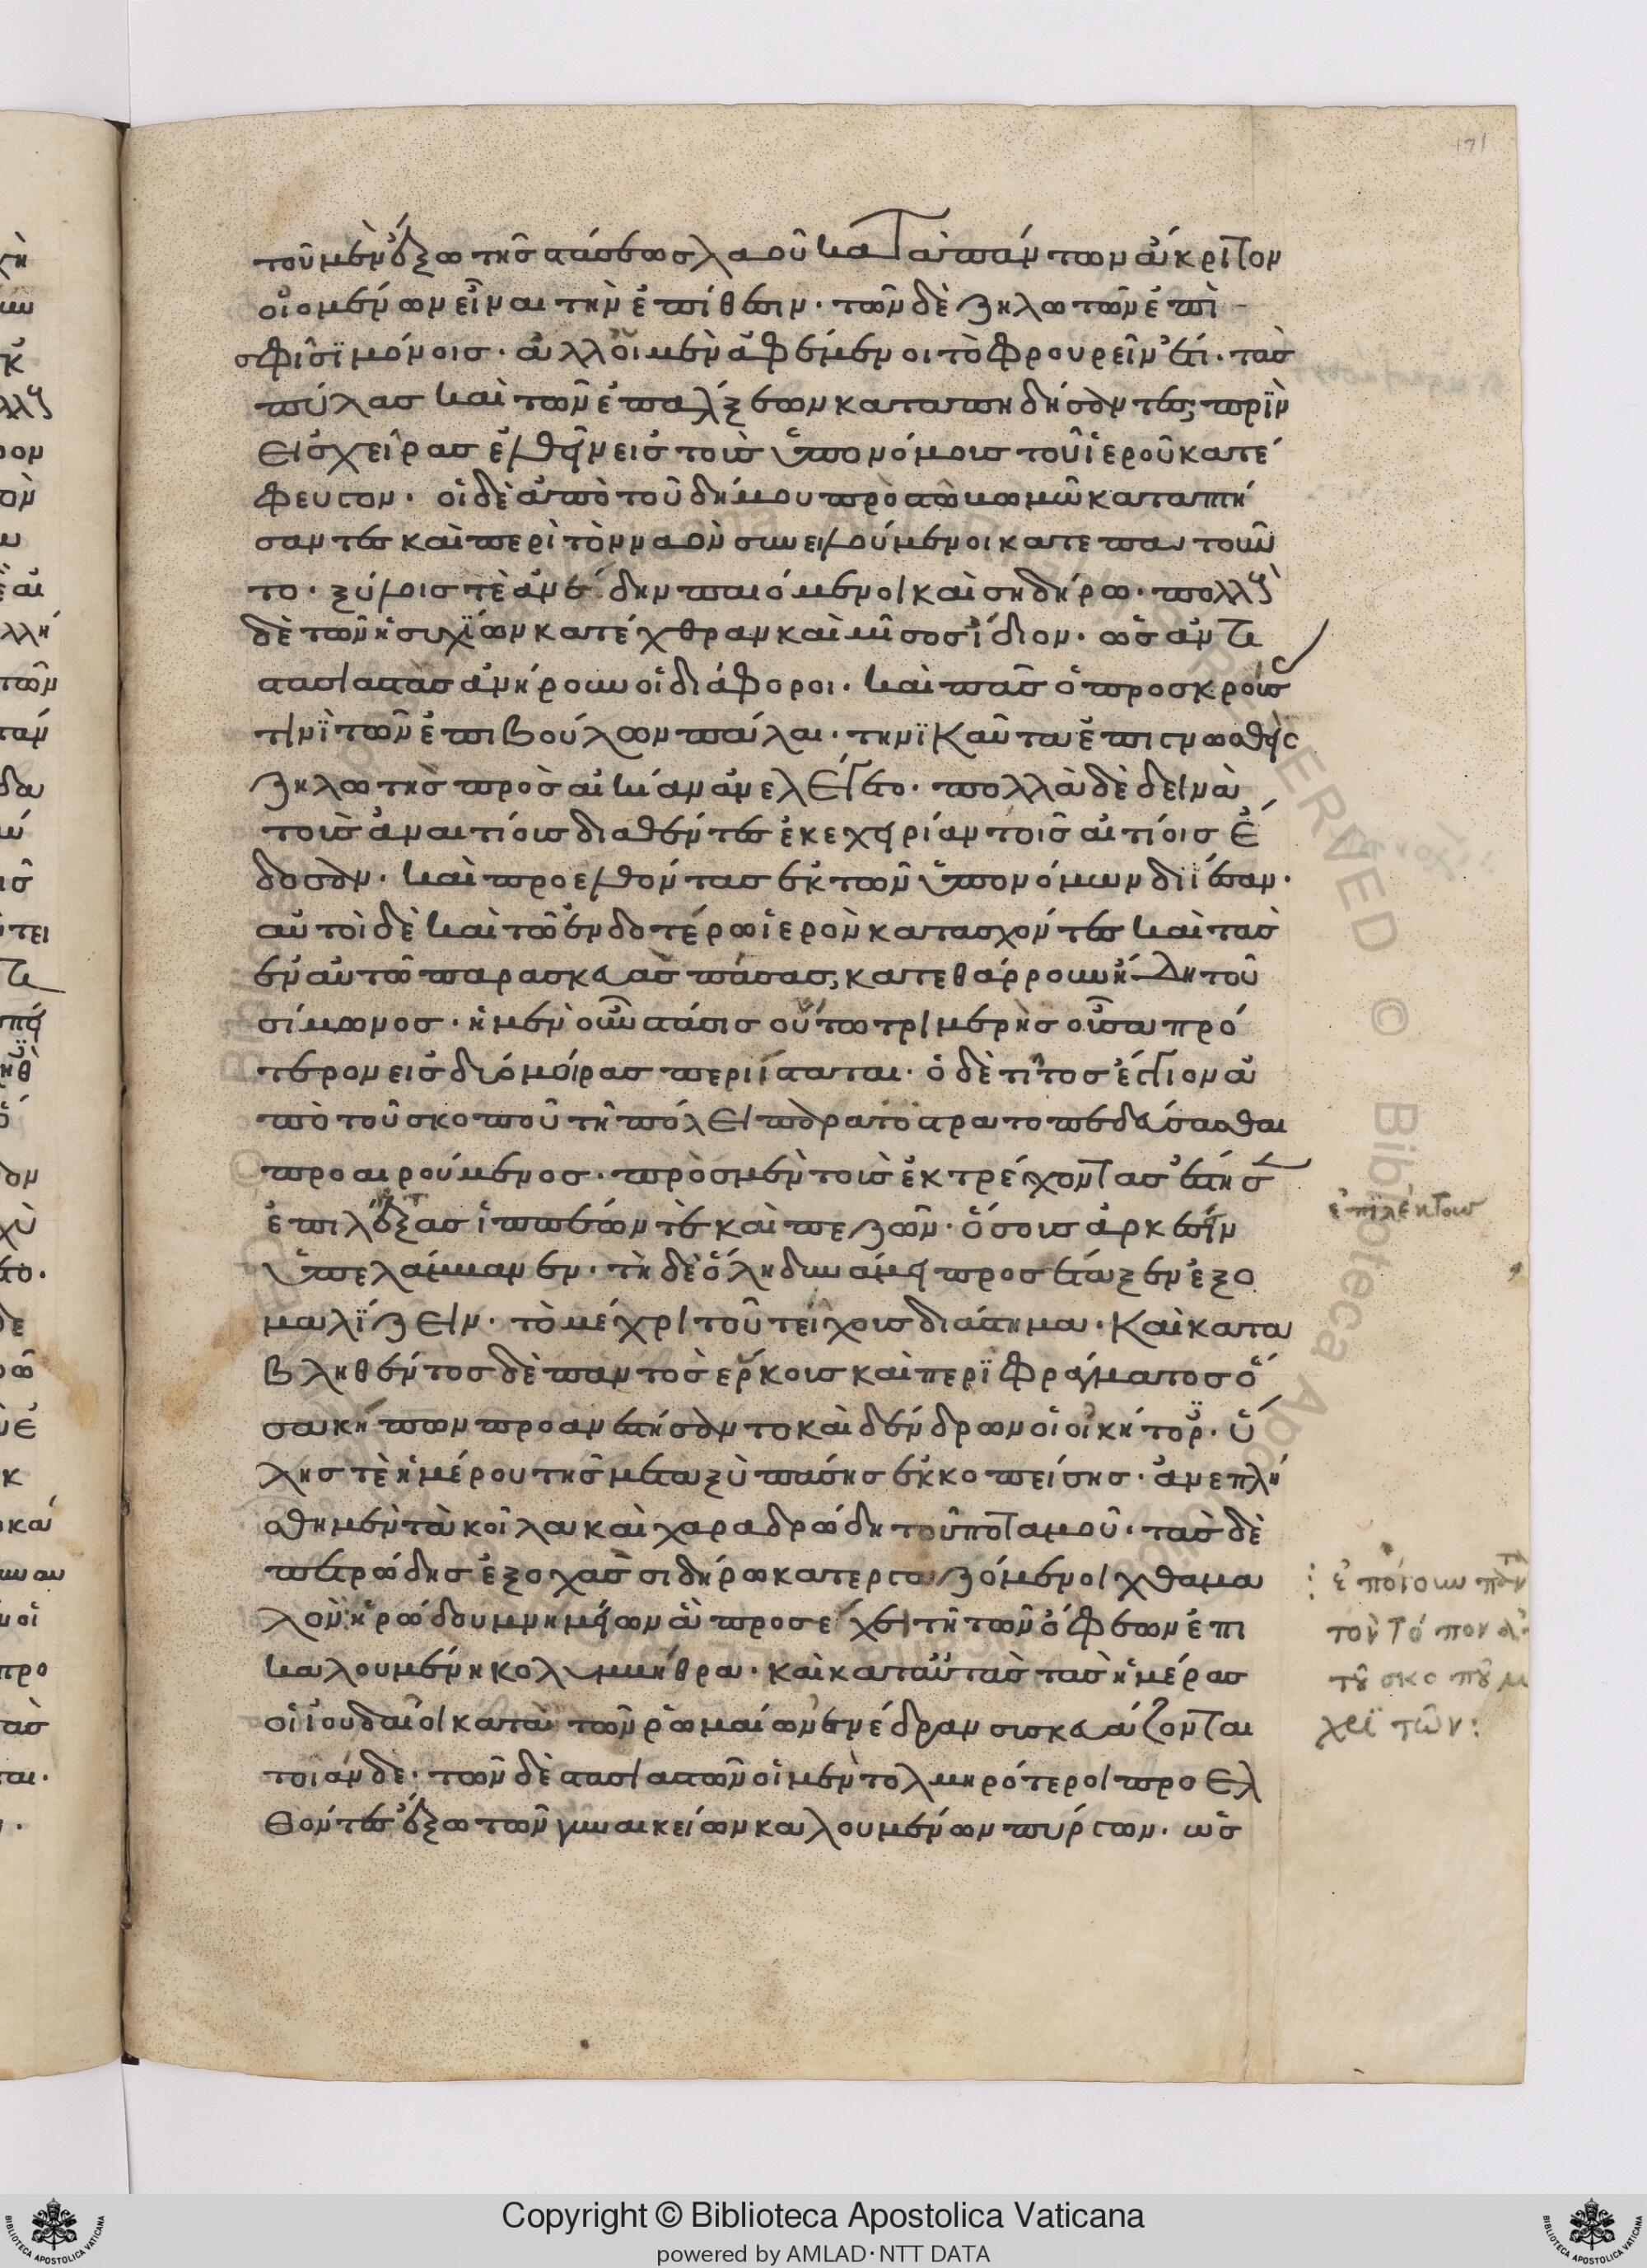 171
τοῦ μὲν ἔξω τῆς στάσεως λαοῦ κατὰ πάντων ἄκριτον
οἰομένων εἶναι τὴν ἐπίθεσιν· τῶν δὲ ζηλωτῶν ἐπὶ
σφίσϊ μόνοις· ἀλλ' οἱ μὲν ἀφέμενοι τὸ φρουρεῖν ἔτι· τὰς
πύλας καὶ τῶν ἐπάλξεων καταπηδήσαντες, πρὶν
εἰς χεῖρας ἐλθεῖν εἰς τοὺς ὑπονόμους τοῦ ἱεροῦ κατέ
φευγον· οἱ δὲ ἀπὸ τοῦ δήμου πρὸς τῶ βωμῶ καταπτή
σαντες καὶ περὶ τὸν ναὸν συνειλούμενοι κατεπατοῦν
το· ξύλοις τὲ ἀνέδην παιόμενοι καὶ σηδήρω· πολλοὺς
δὲ τῶν ἡσυχίων κατέχθραν καὶ μῖσος ἴδιον· ὡς ἀντι
στασιαστὰς ἀνήρουν οἱ διάφοροι· καὶ πᾶς ὁ προσκρούς
τινϊ τῶν ἐπιβούλων πάλαι· τηνϊκαῦτα ἐπιγνωσθεὶς
ζηλωτὴς πρὸς αἰκίαν ἀνελείγετο· πολλὰ δὲ δεινὰ
τοὺς ἀναιτίους διαθέντες ἐκεχειρίαν τοῖς αἰτίοις ἔ
δοσαν· καὶ προελθόντας ἐκ τῶν ὑπονόμων διίεσαν·
αὐτοὶ δὲ καὶ τὸ ἐνδοτέρω ἱερὸν κατασχόντες καὶ τὰς
ἐν αὐτῶ παρασκευὰς πάσας, κατεθάρρουν ἤδη τοῦ
σίμωνος· ἡ μὲν οὖν στάσις οὕτω τριμερὴς οὖσα πρό
τερον εἰς δύο μοίρας περιίσταται· ὁ δὲ τίτος ἔγγιον ἀ
πὸ τοῦ σκοποῦ τῆ πόλει παραστρατοπεδεύσασθαι
προαιρούμενος· πρὸς μὲν τοὺς ἐκτρέχοντας ἔστησ
ἐπιλέξας ἱππέων τὲ καὶ πεζῶν· ὅσους ἀρκέσειν
ὑπελάμβανεν· τῆ δὲ ὅλη δυνάμει προσέταξεν ἐξο
μαλίζειν· τὸ μέχρι τοῦ τείχους διάστημα· καὶ κατα
βληθέντος δὲ παντὸς ἕρκους καὶ περϊφράγματος ὅ
σα κήπων προανεστήσαντο καὶ δένδρων οἱ οἰκήτορες· ὕ
λης τὲ ἡμέρου τῆς μεταξὺ πάσης ἐκκοπείσης· ἀνεπλή
σθη μὲν τὰ κοῖλα καὶ χαραδρώδη τοῦ ποταμοῦ· τὰς δὲ
πετρώδης ἐξοχὰς σιδήρω κατεργαζόμενοι χθαμα
λὸν ἡρώδου μνημείων ἃ προσέχει τῆ τῶν ὄφεων ἐπι
καλουμένη κολυμβήθρα· καὶ κατ' αὐτὰς τὰς ἡμέρας
οἱ ἰουδαῖοι κατὰ τῶν ῥωμαίων ἐνέδραν συσκευάζονται
τοιάνδε· τῶν δὲ στασιαστῶν οἱ μὲν τολμηρότεροι προελ
θόντες ἔξω τῶν γυναικείων καλουμένων πύργων· ὡς
ἐπιλέκτους
ἐποίουν πάν
τὸν τόπον ἀ
τοῦ σκοποῦ μ
χρϊ τῶν:
Copyright © Biblioteca Apostolica Vaticana
powered by AMLAD·NTT DATA